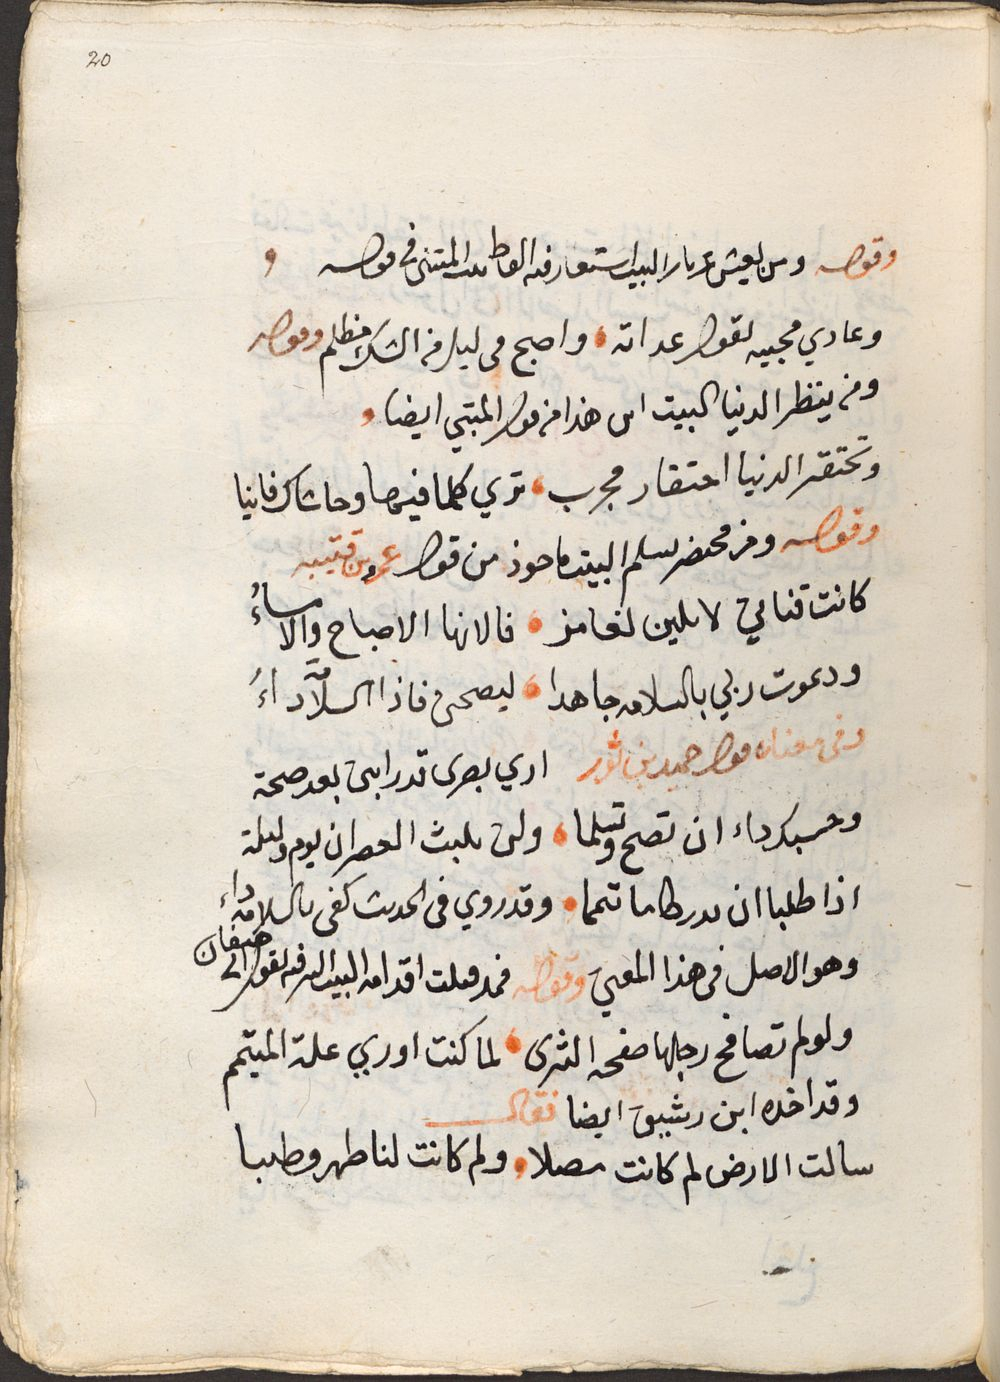 20
وقوله ومن يعيش البيت استعار فيه الفاظ بيت المتنبي في قوله و
وعادي محبيه لقول عداته واصبح في ليل من الشك مظلم وقوله
ومن ينظر الدنيا البيت اين هذا من قول المتنبي ايضا و
وتحتقر الدنيا احتقار مجرب تري كلما فيها وحاشاك فانيا
وقوله ومن محضر لسلم البيت ماخوذ من قول عمرو بن قتيبه
كانت قناتي لا تلين لغامز فالانها الاصباح والامساءُ
ودعوت ربي بالسلامه جاهدا ليصحني فاذا السلامة داءُ
وفي معناه قول حميد بن ثور اري بصري قد رابني بعد صحة
وحسبك داء ان تصح وتسلما ولن يلبث العصران يوم وليلة
اذا طلبا ان يدركا ما تيمما وقد روي في الحديث كفى بالسلامة داء
وهو الاصل في هذا المعني وقوله قبلت اقدامه البيت لقول ابي هفان
ولو لم تصافح رجلها صفحة الثرى لما كنت اوري علة الميتمم
وقد اخذه ابن رشيق ايضا فقال
سالت الارض لم كانت مصلا ولم كانت لنا طهر وطيبا